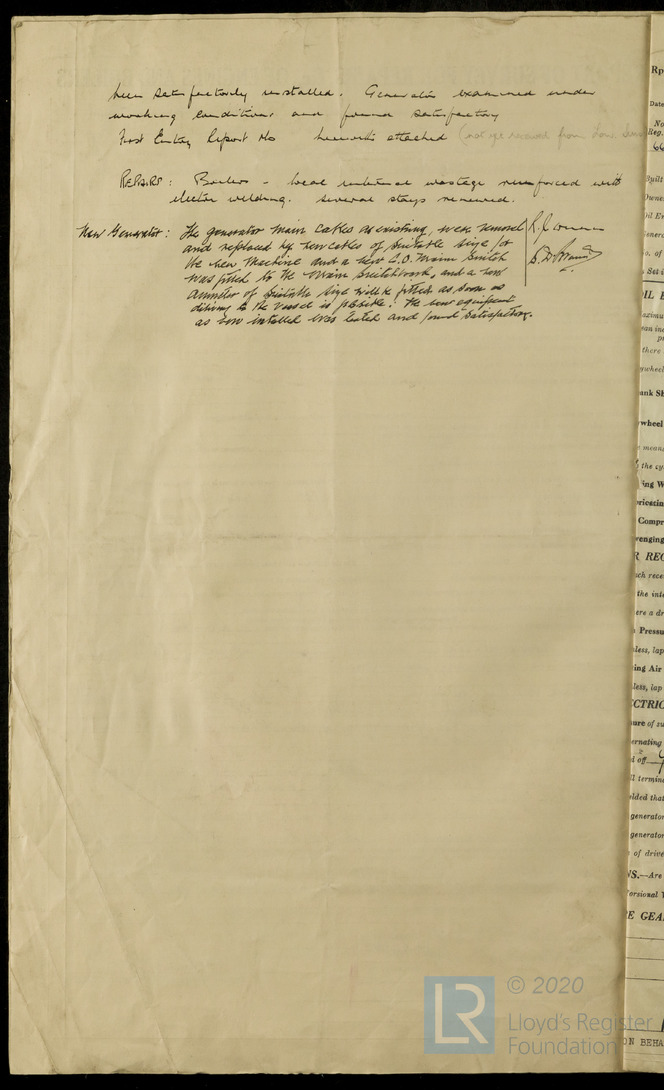 been satisfactorily installed. Generator examined under
working conditions and found satisfactory
First Entry Report No herewith attached (not yet received from
REPAIRS: Boilers - local internal wastage reinforced with
electric welding. Several stays renewed.
New Generator: The generator main cables as existing, were removed
and replaced by new cables of suitable size for
the new machine and a new main switch
was fitted to the main switchboard, and a new
ammeter of suitable size will be fitted as soon as
delivery to the vessel is possible. The new equipment
as now installed was tested and found satisfactory.
© 2020
LR
Lloyd's Register
Foundation
Rp
Date
No
Reg.
66
Built
Owne
Oil E
ener
o. of
Set i
OIL E
aximu
ean in
p
there
ywheel
ank S
wheel
means
the cy
ing W
ricatin
Compr
venging
R REC
ach rece
the int
ere a dr
Pressu
less, lap
ing Air
less, lap
CTRIC
ure of su
ernating
d off
ll termin
elded that
generator
generator
of drive
NS.—Are
orsional V
E GEA
ON BEHA